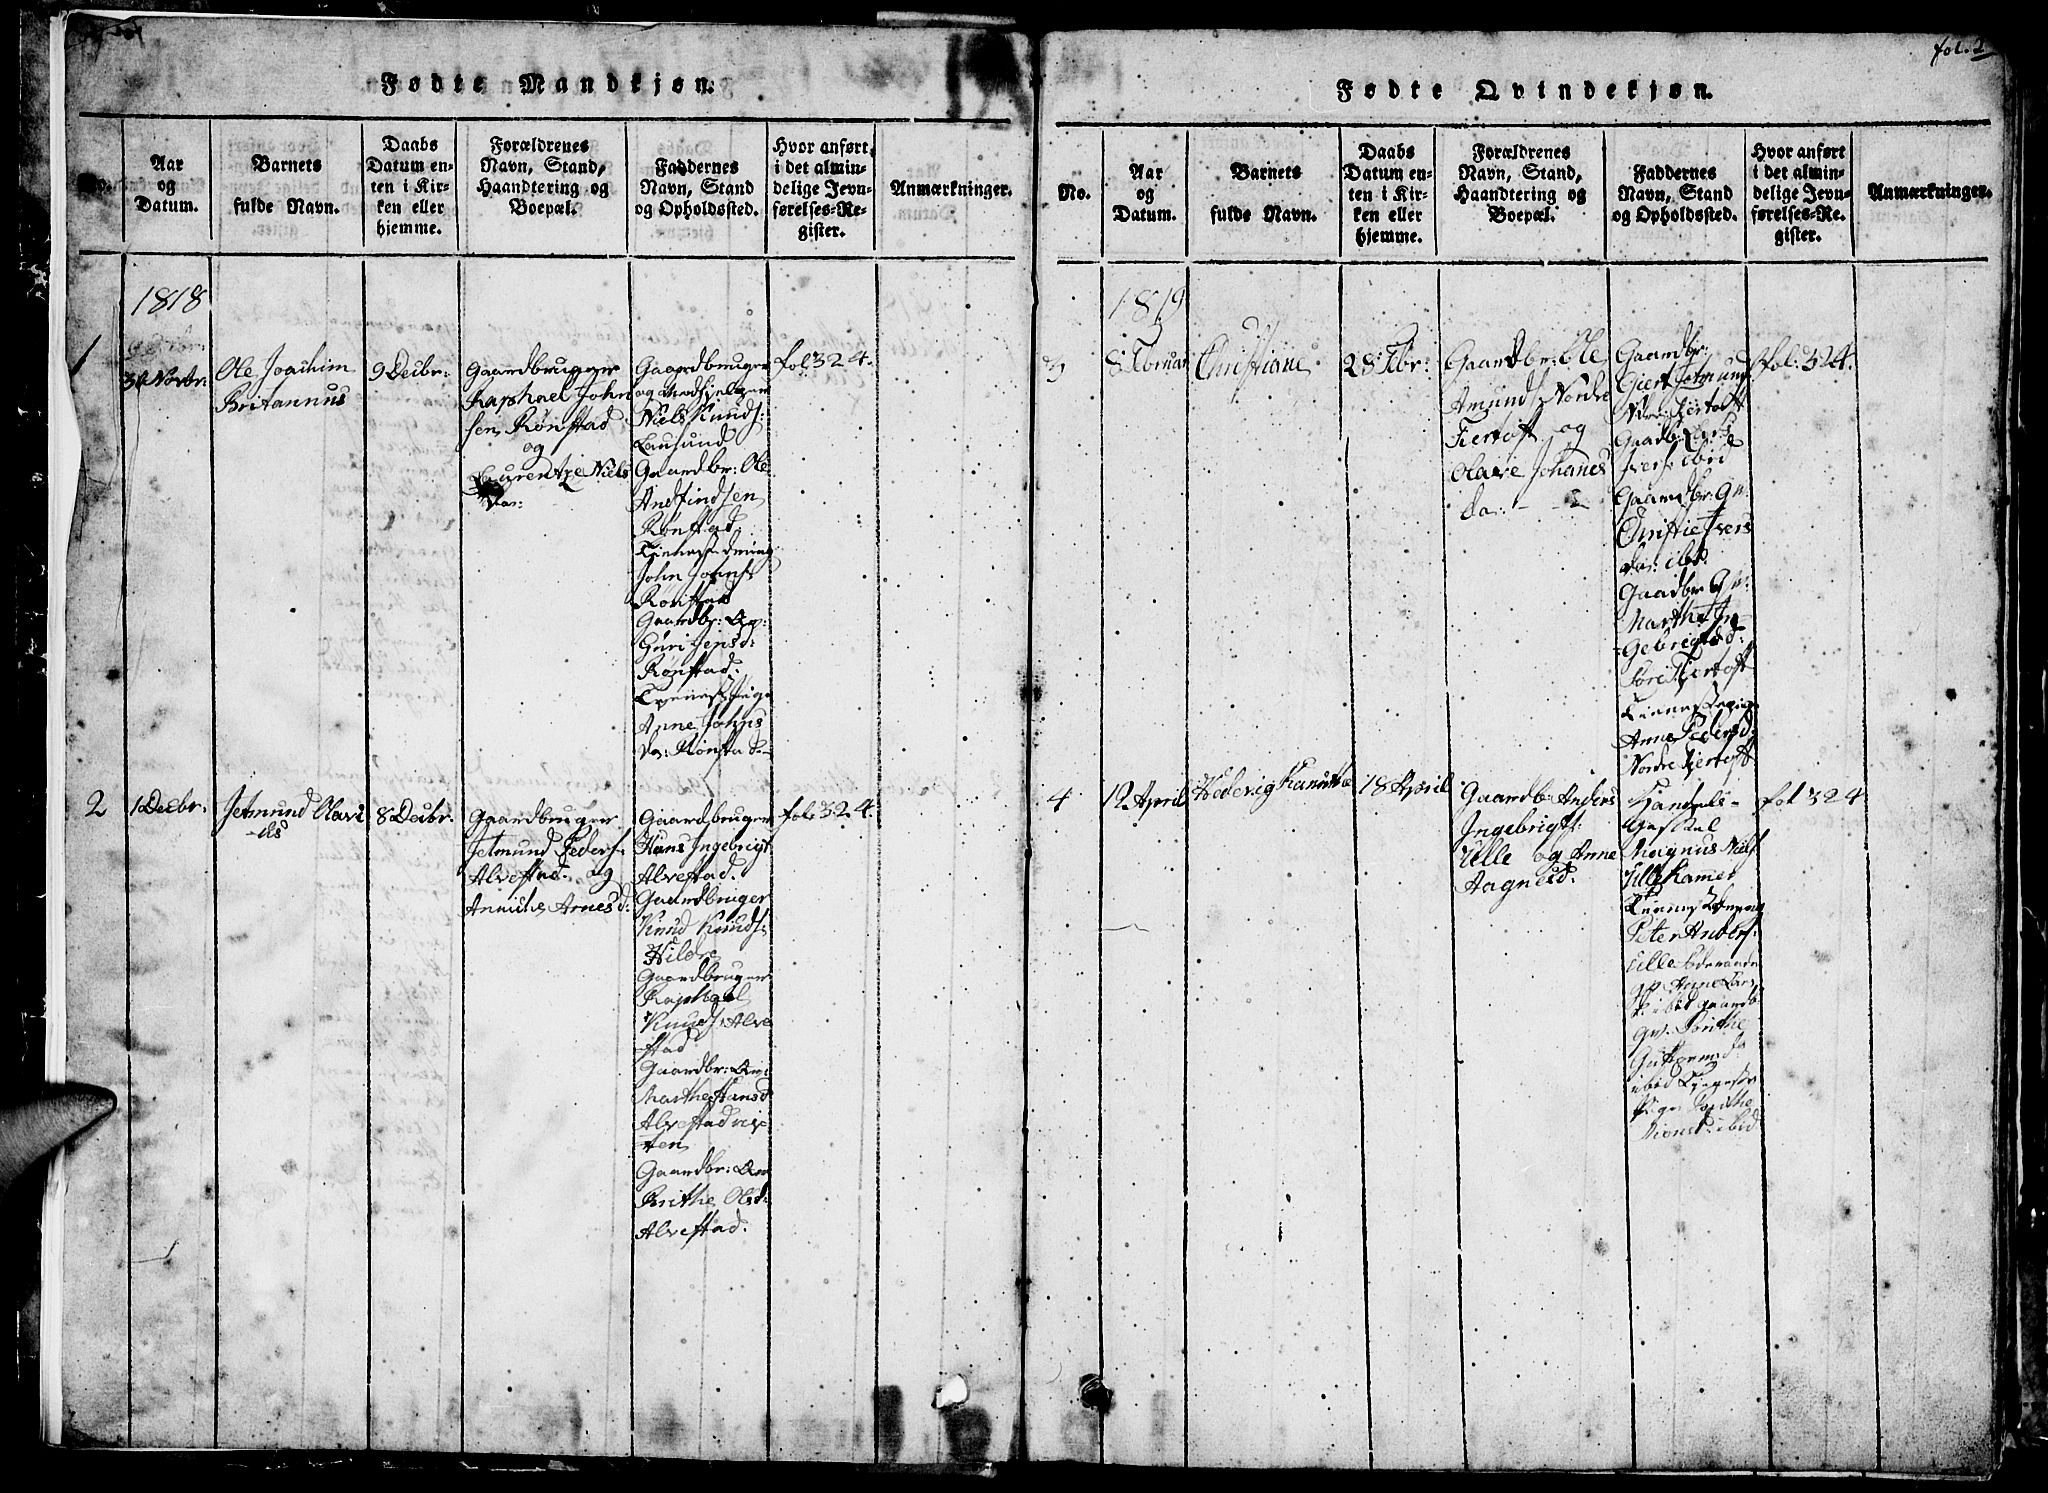 fol. 2
Fødte Mandkjøn.
No.
Aar
og
Datum.
Barnets
fulde Navn.
Daabs
Datum en-
ten i Kir-
ken eller
hjemme.
Forældrenes
Navn, Stand,
Haandtering og
Boepæl.
Faddernes
Navn, Stand
og Opholdssted.
Hvor anført
i det almin-
delige Jevn-
førelses-Re-
gister.
Anmærkninger.
1818
1
30 Novbr:
Ole Joachim
Britannus
9 Decbr:
Gaardbruger
Raphael John
sen Rønstad
og
Laurentze Niels
Dar:
Gaardbruger
og
Niels Knuds:
Lausund
Gaardbr: Ole
Andfindsen
Rønstad
John Johns
Rønstad
Gaardbr:
Guri Jensd:
Rønstad.
Anne Johns
Da: Rønstad.
fol: 324.
2
1 Decbr.
Jetmund Olavi
-us
8 Decbr.
Gaardbruger
Jetmund Peders.
Alvestad. og
Annichs Arnesd.
Gaardbruger
Hans Ingebrigt
Alvestad.
Gaardbruger
Knud Knuds:
Hildre
Gaardbruger
Raphael
Knuds Alve
stad
Gaardbr:
Marthe Hansd
Alvestad
Gaardbr:
Brithe Olsd:
Alvestad.
fol: 324.
Fødte Qvindekjøn.
No.
Aar
og
Datum.
Barnets
fulde Navn.
Daabs
Datum en-
ten i Kir-
ken eller
hjemme.
Forældrenes
Navn, Stand,
Haandtering og
Boepæl.
Faddernes
Navn, Stand
og Opholdssted.
Hvor anført
i det almin-
delige Jevn-
førelses-Re-
gister.
Anmærkninger.
1819
Christiane
28 Fbr:
Gaardbr: Ole
Amunds Nordre
Fiertoft og
Olave Johanes
Da:
Gaardbr:
Giert Jetmund
Nor: Fiertoft
Gaardb: Lars
Ivers: ibid
Gaardbr:
Christie Ivers
Dar: ibid.
Gaardbr
Marthe In
gebrigtsd:
Søre Fiertoft
Anne Pedersd:
Nordre Fiertoft
fol: 324.
4
12 April
Hederig Hanna
18 April
Gaardb: Anders
Ingebrigts:
Ulle og Anne
Aagnesd.
Handels-
Magnus Niels
Ullehamer
Peter Anders:
Ulle
Anne Lars
ibid gaardb
Brithe
ibid
Brithe
ibid
fol 324